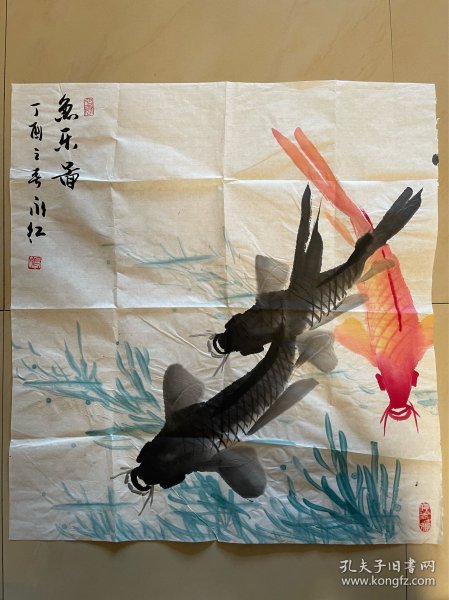 鱼乐图
丁酉之春永红
孔夫子旧书网
www.kongfz.com